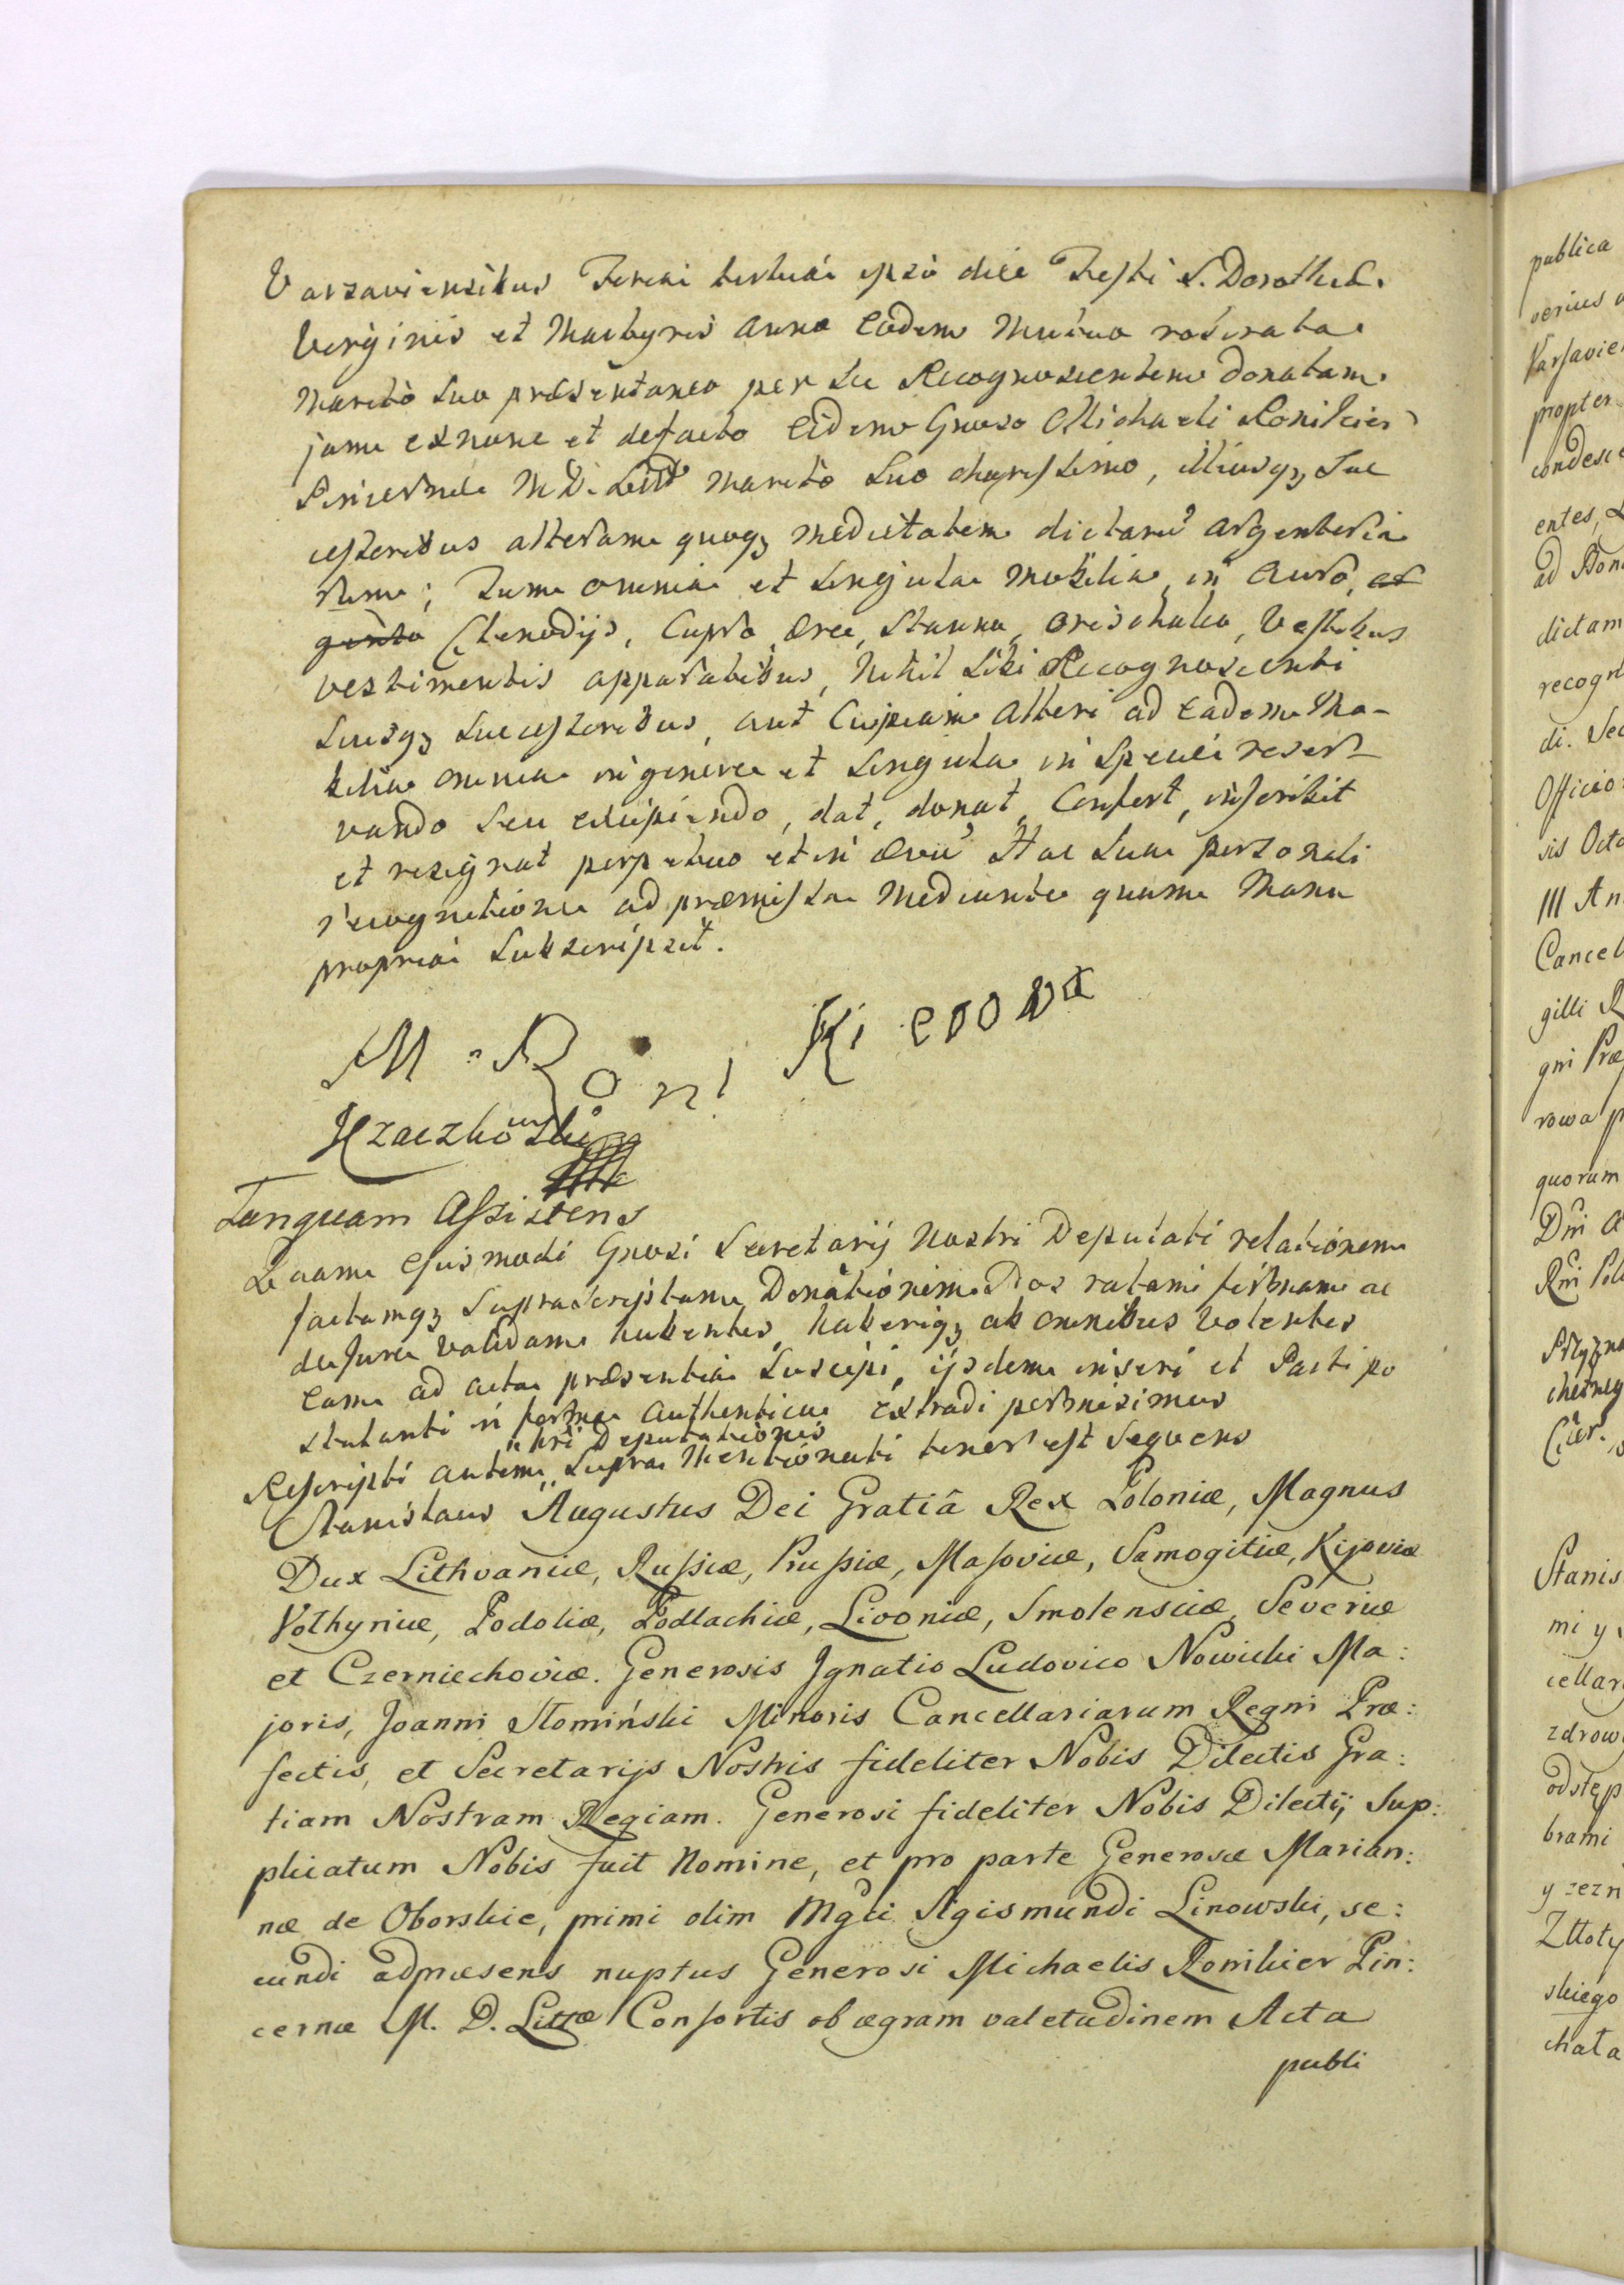 Varsaviensibus Feria tertia ipso die Festi S. Dorotheæ
Virginis et Martyris Anno eodem mutuo roborata
Marito Suo præsentaneo per Se Recognoscentem donatam
jam ex nunc et de facto Eidem Gnoso Michaeli Ronikier
Pincernæ M D. Litt Marito Suo charissimo, illiusqz Suc
cessoribus alteram quoqz medietatem dictaru argenteria
rum; Tum omnia et singula Mobilia, in Auro, ar
gento Clenodijs, Cupro, Ære, Stanno, orichalco, Vestibus
vestimentis apparatibus, Nihil Sibi Recognoscenti
Suisqz Successoribus, aut Cuipiam Alteri ad Eadem Mo-
bilia omnia in genere et Singula in Specie reser
vando Seu excipiendo, dat, donat, Confert, inscribit
et resignat perpetuo et in Ævu Hac Sua personali
recognitione ad præmissa Mediante quam Manu
propria Subscripsit.
M. Roni Kierowa
JCzaczkowski
Tanquam Assistens
Quam Ejusmodi Gnosi Secretarij Nostri Deputati relationem
factamqz Suprascriptam Donationem Nos ratam firmam ac
de Jure validam habentes, haberiqz ab omnibus volentes
Eam ad acta præsentia Suscipi, ijsdem inseri et Parti po
stulanti in forma Authentica extradi permisimus
nri Deputationis
Rescripti autem Supra Mentionati tenor est Sequens
Stanislaus Augustus Dei Gratiâ Rex Poloniæ, Magnus
Dux Lithvaniæ, Russiæ, Prussiæ, Masoviæ, Samogitiæ, Kijoviæ
Volhyniæ, Podoliæ, Podlachiæ, Livoniæ, Smolensciæ, Severiæ
et Czerniechoviæ. Generosis Jgnatio Ludovico Nowicki Ma:
joris, Joanni Słomiński Minoris Cancellariarum Regni Præ:
fectis, et Secretarijs Nostris fideliter Nobis Dilectis Gra:
tiam Nostram Regiam. Generosi fideliter Nobis Dilecti, Sup:
plicatum Nobis fuit Nomine, et pro parte Generosæ Marian:
næ de Oborskie, primi olim Mgci Sigismundi Linowski, se:
cundi adpræsens nuptus Generosi Michaelis Ronikier Pin:
cernæ M. D. Littæ Consortis ob ægram valetudinem Acta
publi
publica
verius
Varsavie
propter
condesce
entes,
ad Don
dictam
recogn
di. Sec
Officio
sis Octo
III An
Cancel
gilli R
gni Præ
rowa p
quorum
Dni
Rni Pol
Stanis
mi y
cellar
zdrow
odstęp
brami
y zezn
Złłoty
skiego
chała